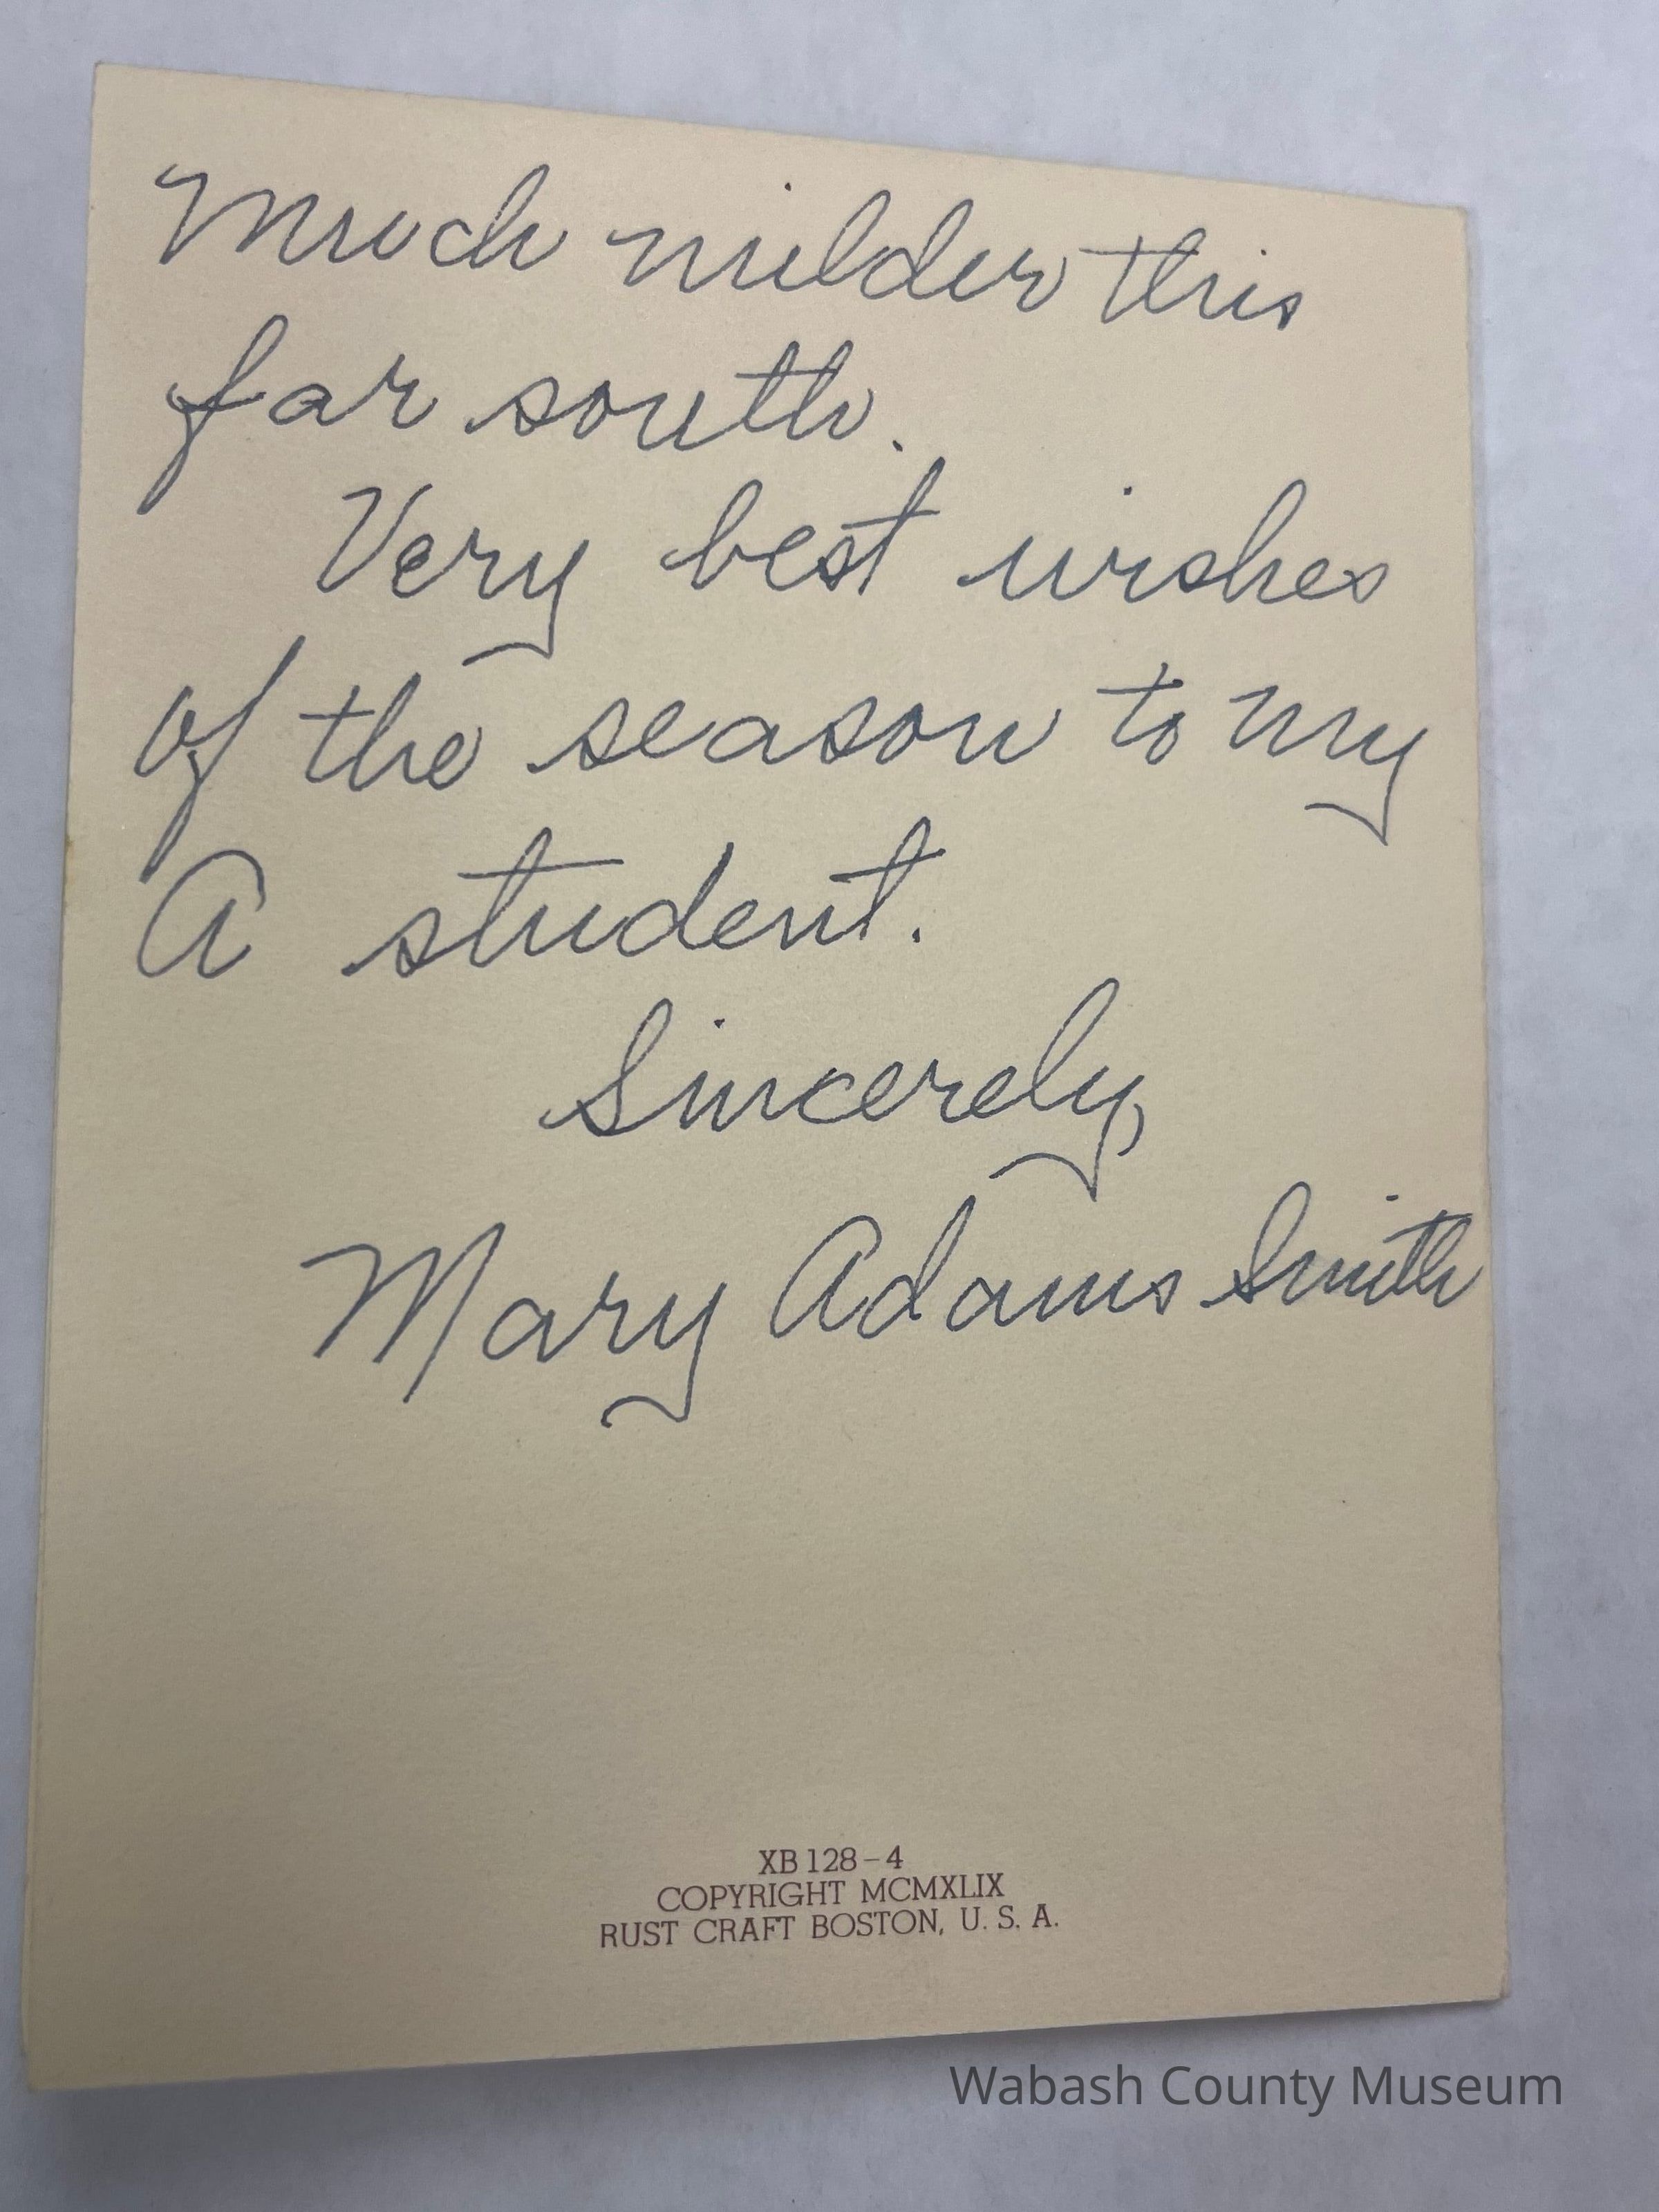 Much milder this
far south.
Very best wishes
of the season to my
A student.
Sincerely,
Mary Adams Smith
XB 128-4
COPYRIGHT MCMXLIX
RUST CRAFT BOSTON, U. S. A.
Wabash County Museum